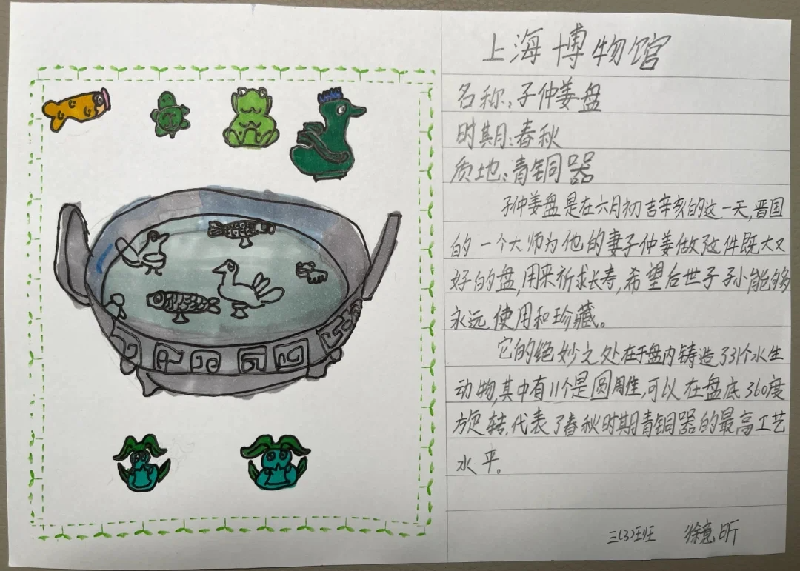 上海博物馆
名称:子仲姜盘
时期:春秋
质地:青铜器
子仲姜盘是在六月初吉辛亥的这一天,晋国
的一个大师为他的妻子仲姜做了这件既大又
好的盘,用来祈求长寿,希望后世子子孙能够
永远使用和珍藏。
它的绝妙之处在于盘内铸造了31个水生
动物,其中有11个是圆雕,可以在盘底360度
方便转,代表了春秋时期青铜器的最高工艺
水平。
三(3)班 徐意昕